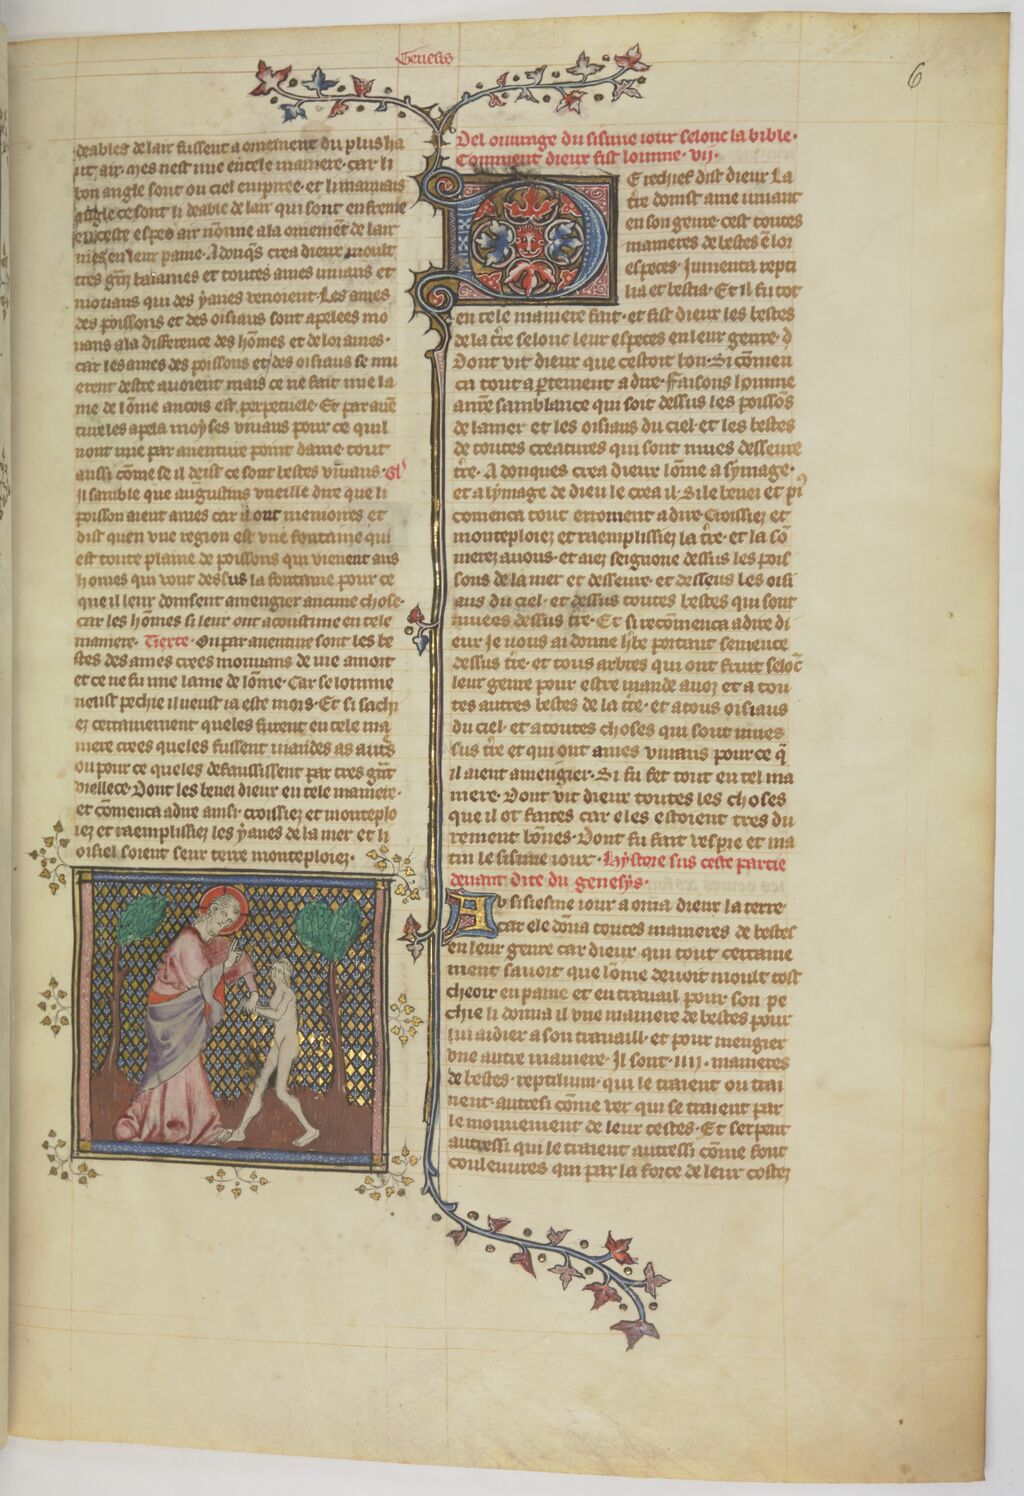 Genesis
6
deables de lair fussent a ornement du plus ha
ut air. mes nest mie en tele maniere. car li
bon angle sont ou ciel empiree. et li mauuais
angle ce sont li deable de lair qui sont enfreme
en ceste espes air nonne a la ornemēt de lair
mes en leur paine. A donqs crea dieux moult
tres grās balaines et toutes ames uiuans et
mouans qui des yaues uenoient. Les ames
des poissons et des oisiaus sont apelees mo
uans a la difference des hōmes et de lor ames.
car les ames des poissons et des oisiaus se mu
erent destre auoient mais ce ne fait mie la
me de lōme ancois est perpetuele. Et par auē
ture les apela moyses uiuans pour ce quil
nont mie par auenture point dame tout
aussi cōme se il deist ce sont bestes uiuans. Gl'
Il samble que augustins vueille dire que li
poisson aient ames car il ont memoires et
dist quen vne region est vne fontaine qui
est toute plaine de poissons qui vienent aus
homes qui vont dessus la fontaine pour ce
que il leur doinsent a mengier aucune chose.
car les hōmes si leur ont acoustume en tele
maniere. Tierte. Ou par auenture sont les be
stes des ames crees mouuans de vie a mort
et ce ne fu mie lame de lōme. Car se lomme
neust pechie il neust ia este mors. Et si sachi
ez certainement queles furent en tele ma
niere crees queles fussent uiandes as autˢ
ou pour ce queles defausissent par tres gr̄t
viellece. Dont les benei dieux en tele maniere.
et cōmenca a dire ainsi. croissiez et monteplo
iez et raemplissiez les yaues de la mer et li
oisiel soient seur terre monteploiez.
Del ouurage du sisime iour selonc la bible.
Comment dieux fist lomme. vii.
De rechief dist dieux La
t̄re doinst ame uiuant
en son genre cest toutes
manieres de bestes ē lor
especes. Iumenta repti
lia et bestia. Et il fu tot
en tele maniere fait. et fist dieux les bestes
de la t̄re selonc leur especes en leur genre. d
Dont vit dieux que cestoit bon. Si cōmen
ca tout apertement a dire. Faisons lomme
a nr̄e samblance qui soit dessus les poissōs
de la mer et les oisiaus du ciel. et les bestes
de toutes creatures qui sont mues desseure
t̄re. A donques crea dieux lōme a symage.
et a lymage de dieu le crea il. Si le benei et pᵘ
comenca tout erroment a dire. Croissiez et
monteploiez et raemplissiez la t̄re. et la so
metez a uous. et aiez seignorie dessus les pois
sons de la mer et desseure. et dessus les oisi
aus du ciel. et dessus toutes bestes qui sont
muees dessus t̄re. Et si recōmenca a dire di
eux Ie vous ai donne h̄be portant semence
dessus t̄re. et tous arbres qui ont fruit selōc
leur genre pour estre uiande a uoz et a tou
tes autres bestes de la t̄re. et a tous oisiaus
du ciel. et a toutes choses qui sont mues
sus t̄re et qui ont ames viuans pour ce q̄
il aient a mengier. Si fu fet tout en tel ma
niere. Dont vit dieux toutes les choses
que il ot faites car eles estoient tres du
rement bōnes. Dont fu fait vespre et ma
tin le sisime iour. Hystore sus ceste partie
deuant dite du genesys.
AV sisiesme iour a orna dieux la terre
car ele dōna toutes manieres de bestes
en leur genre car dieux qui tout certaine
ment sauoit que lōme deuoit moult tost
cheoir en paine et en trauail pour son pe
chie li donna il vne maniere de bestes pour
lui aidier a son trauaill. et pour mengier
vne autre maniere. Il sont .IIII. manieres
de bestes. reptilium. qui le traient ou trai
nent. autresi cōme ver qui se traient par
le mouuement de leur testes. Et serpent
autressi qui le traient autressi cōme font
couleuures qui par la force de leur costez